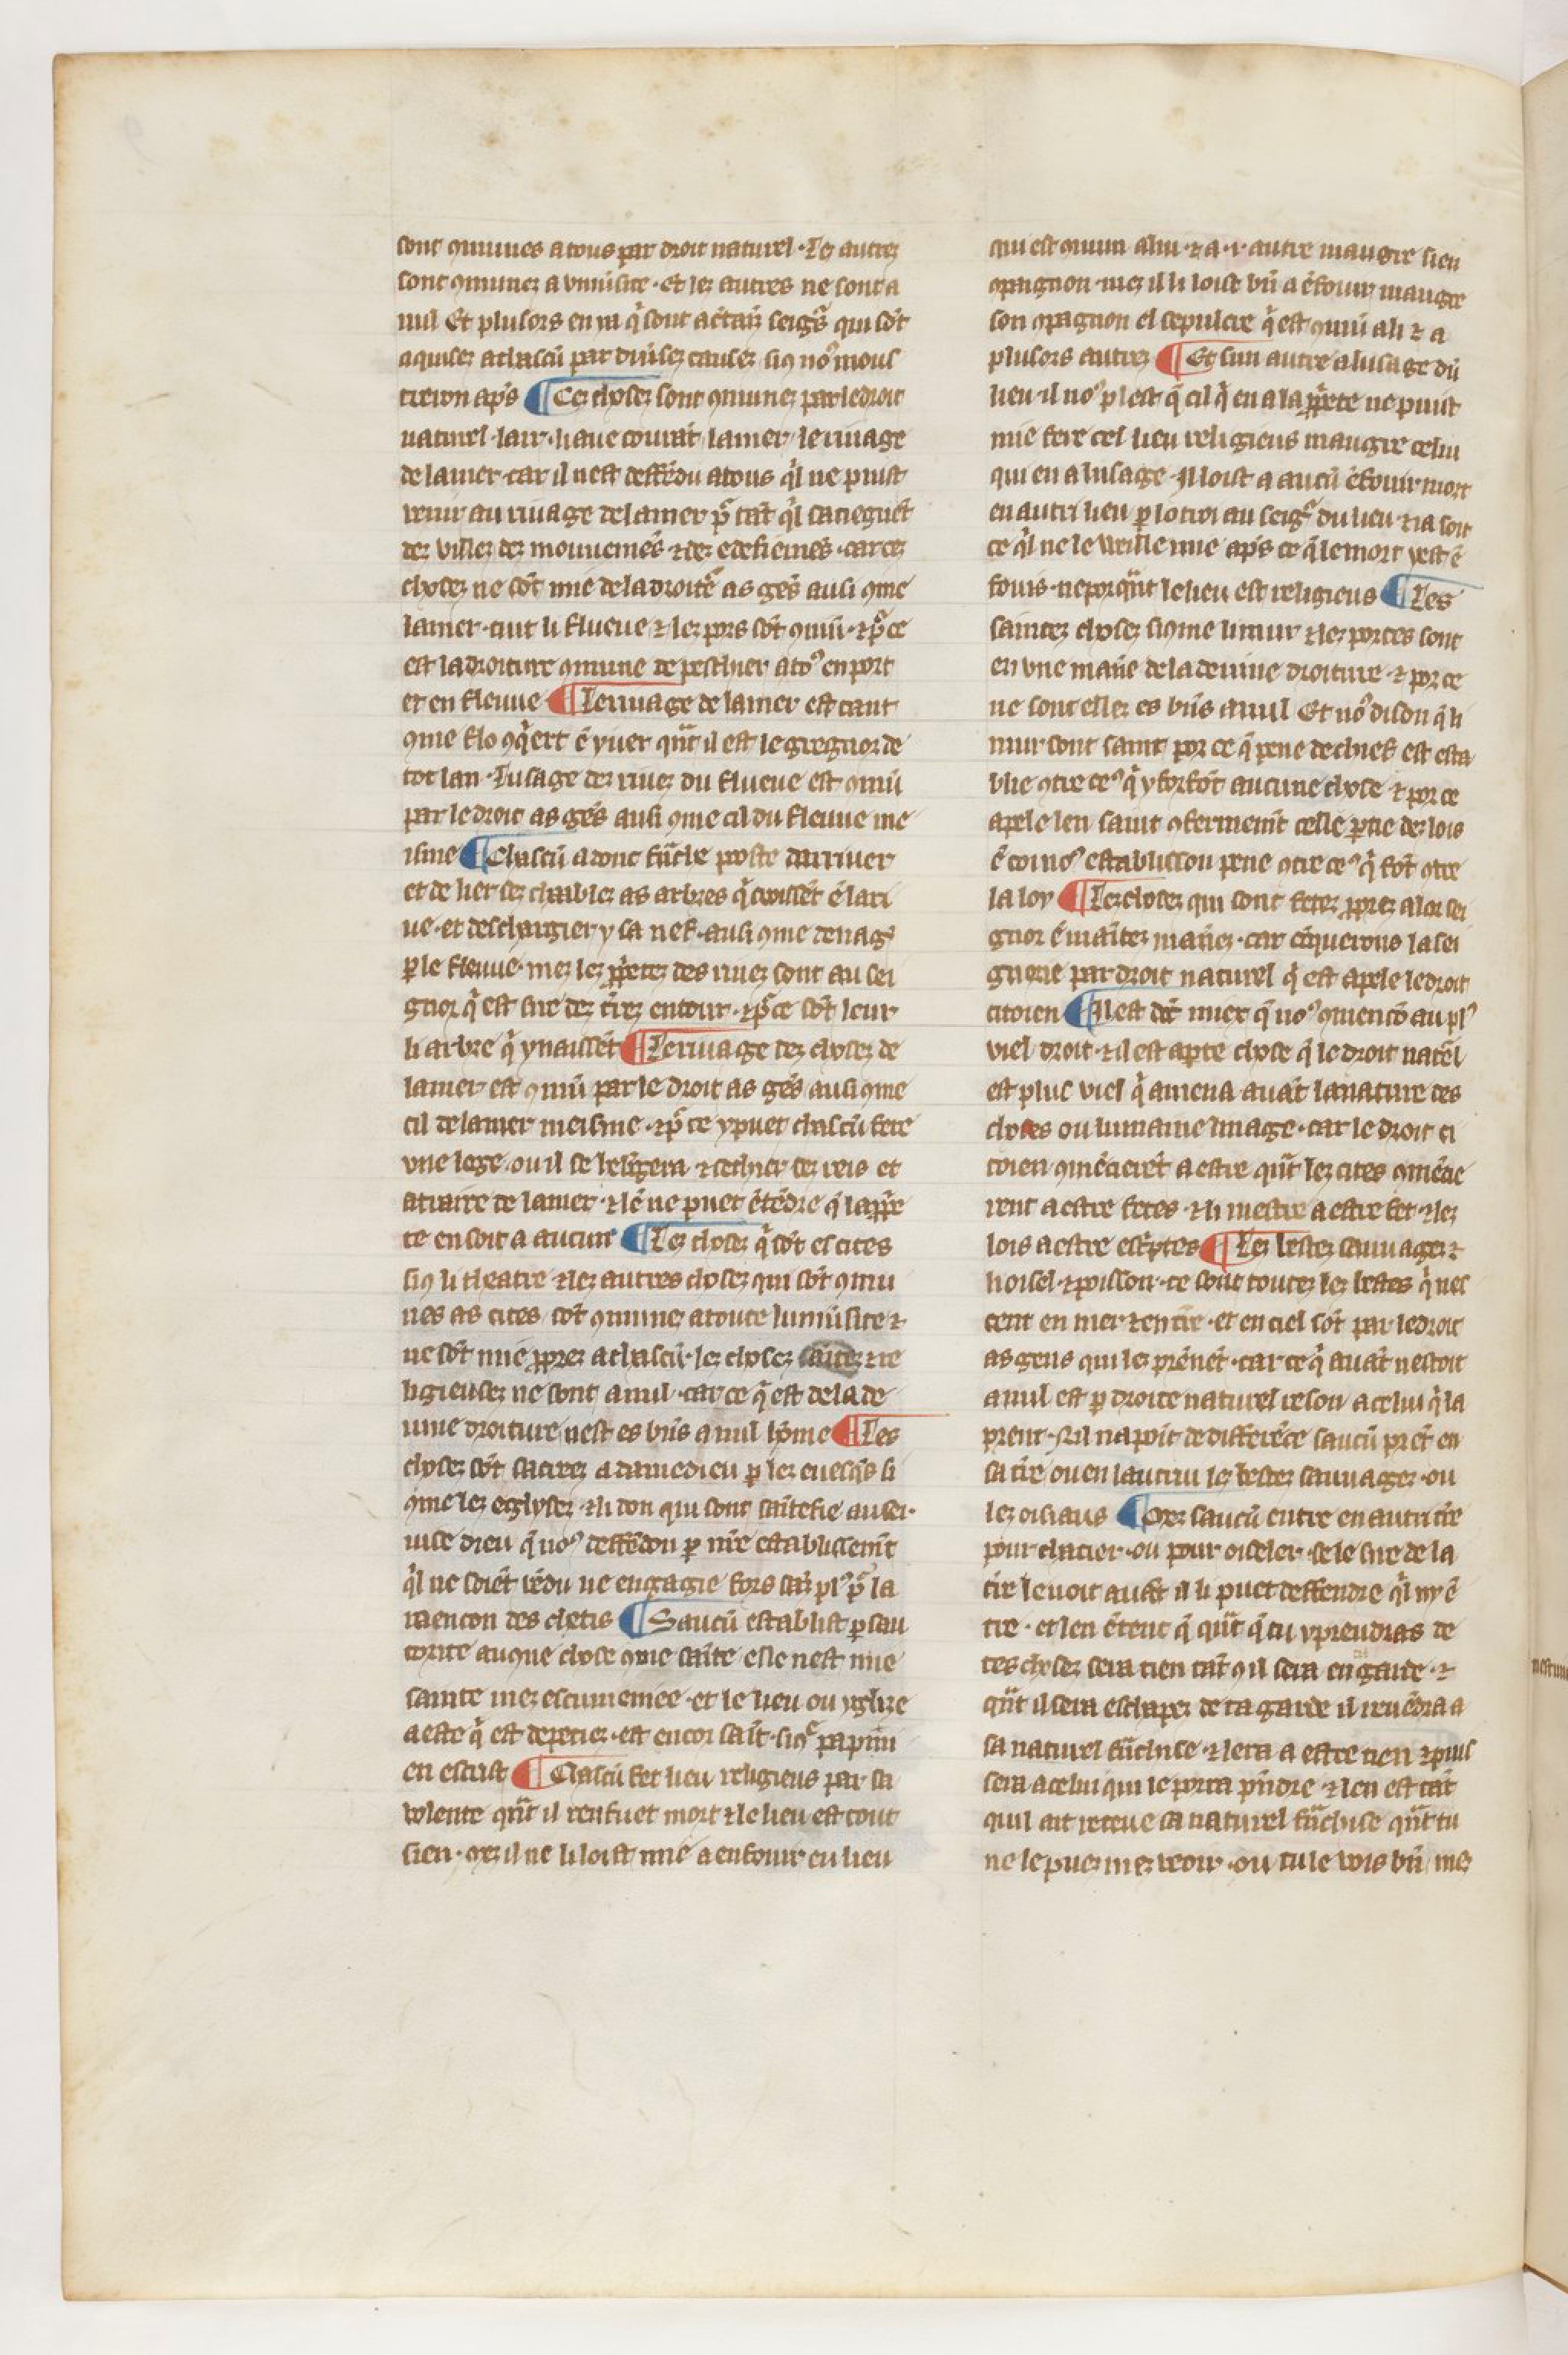 sont ꝯmunes a tous par droit naturel · Les autrez
sont ꝯmunez a vniũsite · Et lez autres ne sont a
nul Et plusors en ia q̃ sont a c̾taiñ seigñ̾s qui sõt
aquisez a chascũ par diu̾sez causez siꝯ noꝰ mous
treron ap̾s ¶ Cez chosez sont ꝯmunez par le droit
naturel · lair · liaue courãt lamer le riuage
de lamer · car il nest deffẽdu a tous q̾l ne puist
venir au riuage de lamer p̾ tãt q̾l satiegnẽt
dez villez dez mouuemẽs ⁊ dez edefiemẽs · car cez
chosez ne sõt mie de la droitẽ as gẽs ausi ꝯme
lamer · tuit li flueue ⁊ lez pors sõt ꝯmũ · ⁊ p̾ ce
est la droiture ꝯmune de peschier a toꝰ en port
et en fleuue ¶ Le riuage de lamer est tant
ꝯme flo ꝯq̾ert ẽ yuer qũt il est le gregnor de
tot lan · Lusage dez riuez du flueue est ꝯmũ
par le droit as gẽs ausi ꝯme cil du fleuue me
isme ¶ Chascũ a donc frãche poste darriuer
et de lier sez chablez as arbres q̾ croissẽt ẽ la ri
ue · et deschargier y sa nef · ausi ꝯme de nag̾
ꝑ le fleuue · mez lez ꝓp̾etez des riuez sont au sei
gnor q̾ est sire dez t̾rez entour · ⁊ p̾ ce sõt leur
li arbre q̾ y naissẽt ¶ Le riuage dez chosez de
lamer est ꝯmũ par le droit as gẽs ausi ꝯme
cil de lamer meisme · ⁊ p̾ ce y puet chascũ fere
vne loge · ou il se hebgera ⁊ sechier sez reis et
atraire de lamer · ⁊ lẽ ne puet ẽtẽdre q̃ la ꝓp̾e
te en soit a aucun ¶ Lez chosez q̾ sõt es cites
siꝯ li theatre ⁊ lez autres chosez qui sõt ꝯmu
nes as cites sõt ꝯmunez a toute luniũsite ⁊
ne sõt mie ꝓprez a chascũ · lez chosez saĩtez ⁊ re
ligieusez ne sont a nul · car ce q̾ est de la de
uine droiture nest es biẽs a nul hõme ¶ Les
chosez sõt sacreez a damedieu ꝑ lez euesq̾s si
ꝯme lez eglysez ⁊ li don qui sont saĩtefie au ser
uise dieu q̃ noꝰ deffẽdon ꝑ nr̃e establissemt̃
q̾l ne soiẽt vẽdu ne engagie fors sãs plꝰ p̾ la
raencon des chetis ¶ Saucũ establist ꝑ sau
torite auꝯne chose ꝯme saĩte elle nest mie
sainte mez escumeniee · et le lieu ou yglise
a este q̾ est depecies · est encor saĩt · siꝯ papini
en escrist ¶ Chascũ fet lieu religieus par sa
volente qũt il renfuet mort ⁊ le lieu est tout
sien · mez il ne li loist mie a enfouir eu lieu
qui est ꝯmun a lui · ⁊ a · i · autre maugre sien
ꝯpagnon · mez il li loist biẽ a ẽfouir maugre
son ꝯpagnon el sepulcre q̾ est ꝯmũ a li ⁊ a
plusors autrez ¶ Et sun autre a lusage dũ
lieu · il noꝰ plest q̃ cil q̾ en a la ꝓp̾ete ne puist
mie fere cel lieu religieus maugre celui
qui en a lusage · Il loist a aucũ ẽfouir mort
en autri lieu ꝑ lotroi au seig̾ du lieu · ⁊ ia soit
ce q̾l ne le veille mie ap̾s ce q̃ le mort yest ẽ
fouis · neporq̃nt le lieu est religieus ¶ Les
saintez chosez siꝯme li mur ⁊ lez portes sont
en vne maniẽ de la deuine droiture · ⁊ por ce
ne sont ellez es biẽs a nul Et noꝰ disõn q̃ li
mur sont saint por ce q̃ pene de chief est esta
blie ꝯtre ceꝰ q̾ y forfõt aucune chose · ⁊ por ce
apele len saint ꝯfermemt̃ celle ꝑtie dez lois
ẽ coi noꝰ establisson pene ꝯtre ceꝰ q̾ fõt ꝯtre
la loy ¶ Lez chosez qui sont fetez ꝓprez a lor sei
gnor ẽ maĩtez manẽz · car ꝯquerons la sei
gnorie par droit naturel q̾ est apele le droit
citoien ¶ Il est dõt miex q̃ noꝰ ꝯmencõ au plꝰ
viel droit · ⁊ il est aperte chose q̃ le droit natẽl
est plus viel q̾ amena auãt la nature des
choses ou lumaine linage · car le droit ci
toien ꝯmẽcierẽt a estre qũt lez cites ꝯmẽcie
rent a estre fetes · ⁊ li mestre a estre fet ⁊ lez
lois a estre esc̾ptes ¶ Lez bestez sauuagez ⁊
li oisel · ⁊ poisson · ce sont toutez lez bestes q̾ nes
cent en mer ⁊ en t̾re · et en ciel sõt par le droit
as gens qui lez prẽnẽt · car ce q̾ auãt nestoit
a nul est ꝑ droite naturel reson a celui q̾ la
prent · Ne il na point de differẽce saucũ prẽt en
sa t̾re ou en lautrui lez bestez sauuagez · ou
lez oisiaus ¶ Mez saucũ entre en autri t̾re
pour chacier · ou pour oiseler · se le sire de la
t̾re le uoit auãt il li puet deffendre q̾l ny ẽ
tre · et len ẽtent q̃ qũt q̃ tu y prendras de
ces chosez sera tien tãt ꝯ il sera en ta garde · ⁊
qũt il sera eschapez de ta garde il reuẽdra a
sa naturel frãchise · ⁊ lera a estre tien ⁊ puis
sera a celui qui le porra p̾ndre · ⁊ len est tãt
quil ait receue sa naturel frãchise qũt tu
ne le puez mez veoir · ou tu le vois biẽ mez